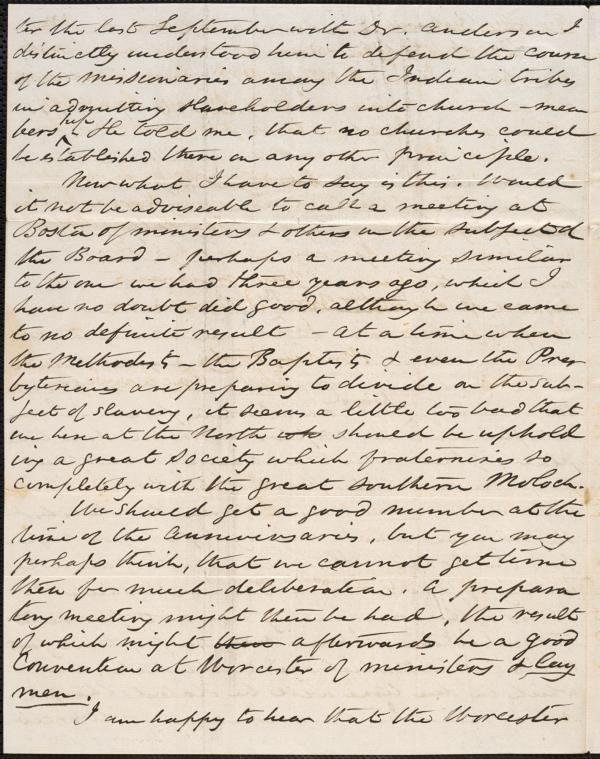 ter the last September with Dr. Anderson I
distinctly understood him to defend the course
of the missionaries among the Indian tribes
in admitting slaveholders into church-mem
bership. He told me, that no churches could
be established there on any other principle.
Now what I have to say is this. Would
it not be adviseable to call a meeting at
Boston of ministers & others on the subject of
the Board - perhaps a meeting similar
to the one we had three years ago, which I
have no doubt did good, although we came
to no definite result - At a time when
the Methodists - the Baptists & even the Pres
byterians are preparing to divide on the sub-
ject of slavery, it seems a little too bad that
we here at the North should be uphold
ing a great Society which fraternizes so
completely with the great southern Moloch.
We should get a good number at the
time of the anniversaries, but you may
perhaps think, that we cannot get time
then for much deliberation. A prepara
tory meeting might then be had, the result
of which might then afterwards be a good
Convention at Worcester of ministers & lay
men.
I am happy to hear that the Worcester